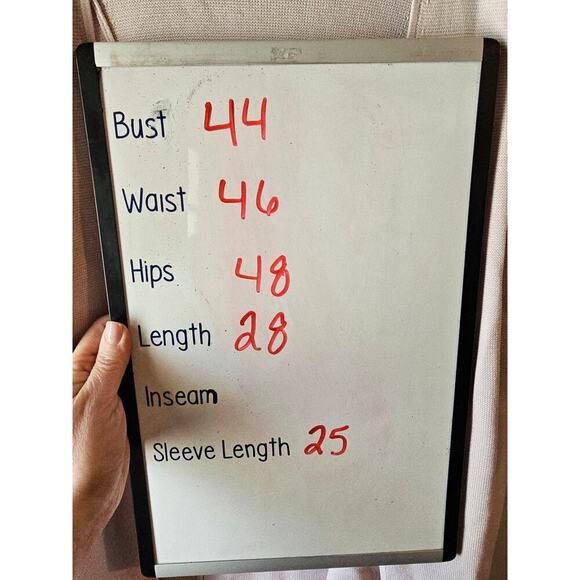 Bust 44
Waist 46
Hips 48
Length 28
Inseam
Sleeve Length 25